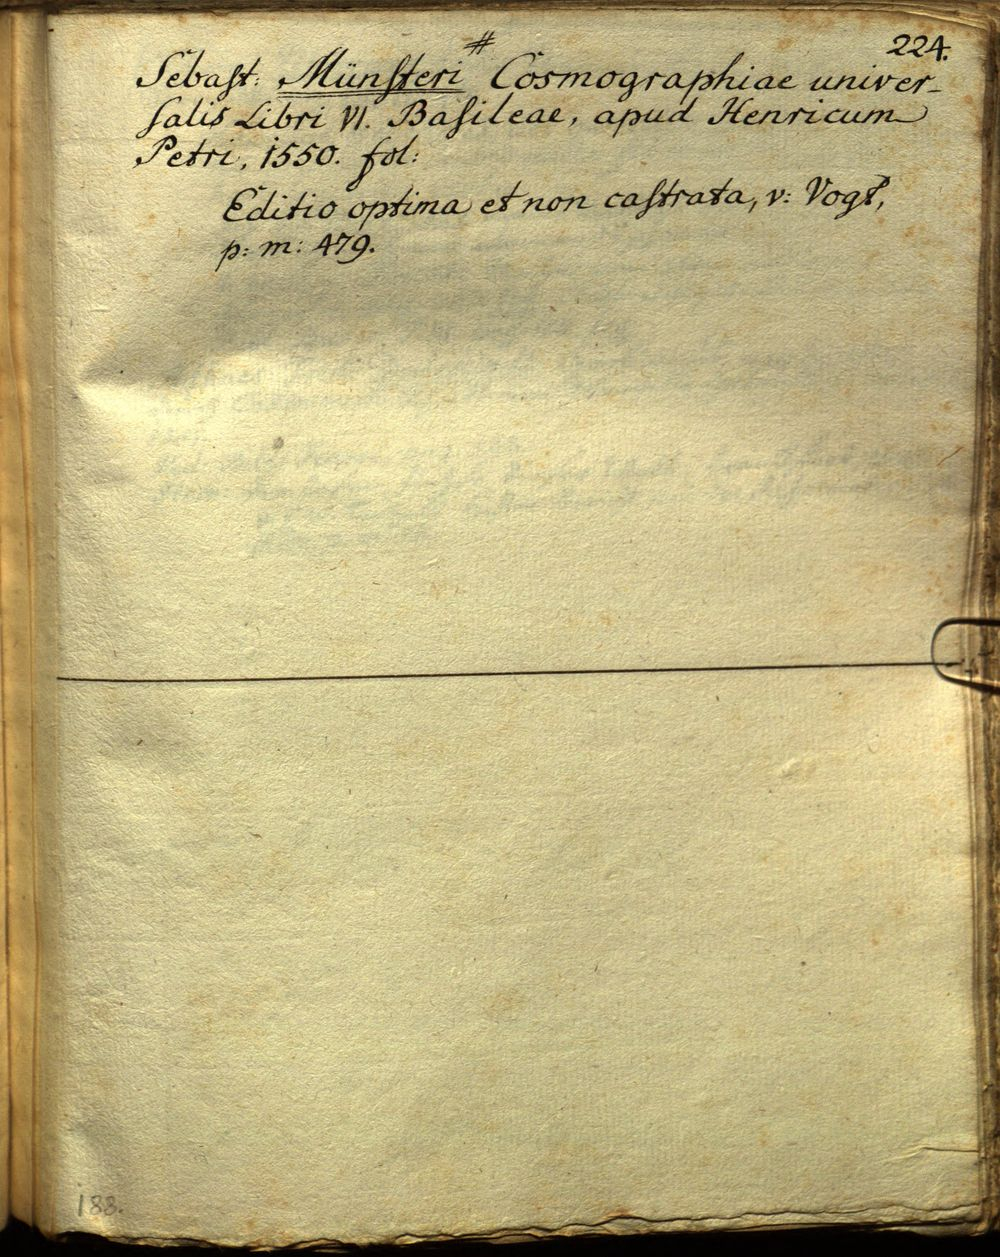 224.
#
Sebaſt: Münſteri Cosmographiae univer-
ſalis Libri VI. Baſileae, apud Henricum
Petri, 1550. fol:
Editio optima et non caſtrata, v: Vogt,
p: m: 479.
188.